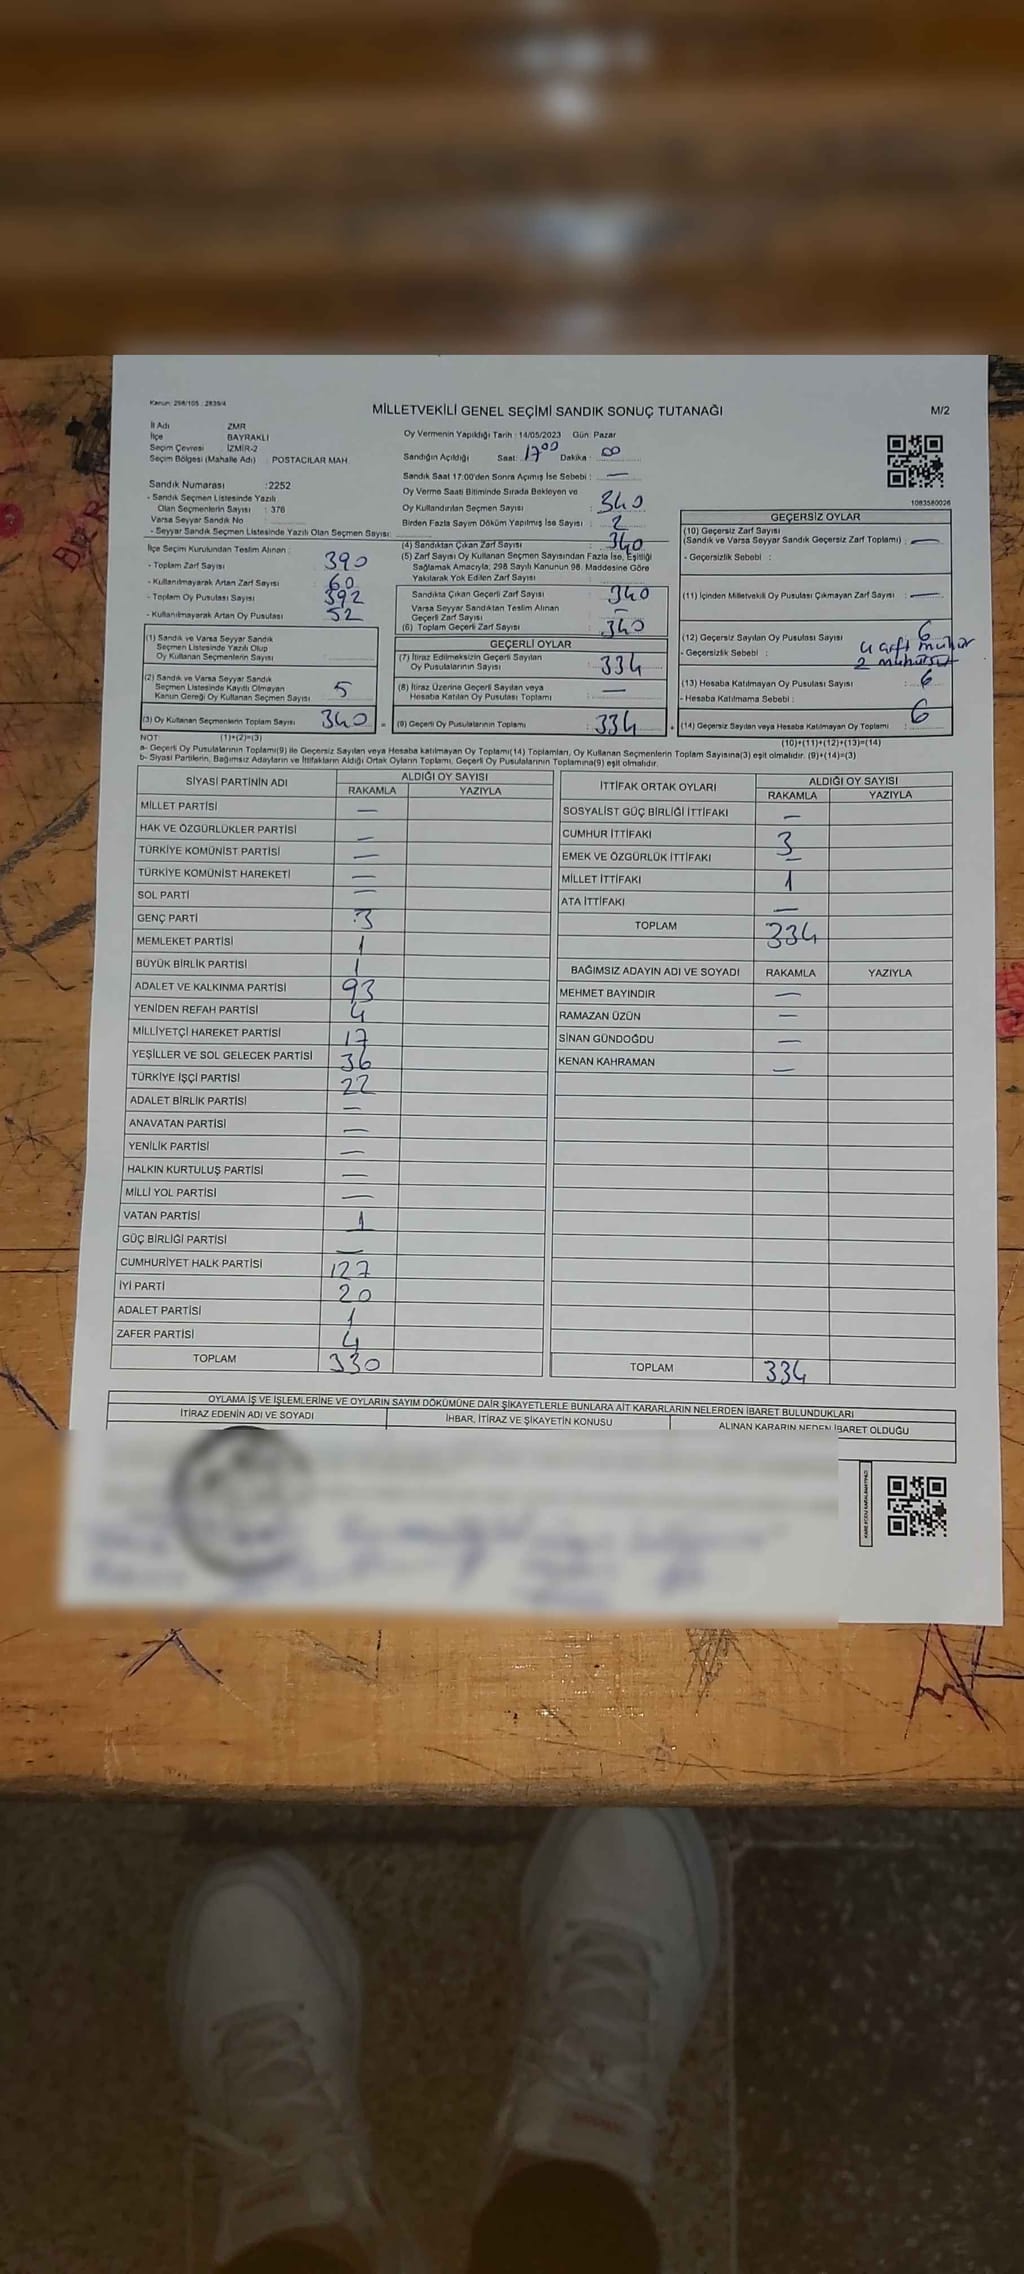 Kanun: 298/105 : 2839/4
MİLLETVEKİLİ GENEL SEÇİMİ SANDIK SONUÇ TUTANAĞI
M/2
İl Adı ZMR
İlçe BAYRAKLI
Seçim Çevresi İZMİR-2
Seçim Bölgesi (Mahalle Adı) : POSTACILAR MAH.
Sandık Numarası :2252
- Sandık Seçmen Listesinde Yazılı
Olan Seçmenlerin Sayısı : 376
Varsa Seyyar Sandık No
- Seyyar Sandık Seçmen Listesinde Yazılı Olan Seçmen Sayısı:
İlçe Seçim Kurulundan Teslim Alınan :
- Toplam Zarf Sayısı 390
- Kullanılmayarak Artan Zarf Sayısı : 60
- Toplam Oy Pusulası Sayısı 392
- Kullanılmayarak Artan Oy Pusulası : 52
(1) Sandık ve Varsa Seyyar Sandık
Seçmen Listesinde Yazılı Olup
Oy Kullanan Seçmenlerin Sayısı
(2) Sandık ve Varsa Seyyar Sandık
Seçmen Listesinde Kayıtlı Olmayan
Kanun Gereği Oy Kullanan Seçmen Sayısı 5
(3) Oy Kullanan Seçmenlerin Toplam Sayısı 340 =
Oy Vermenin Yapıldığı Tarih : 14/05/2023 Gün: Pazar
Sandığın Açıldığı Saat: 17 00 Dakika : 00
Sandık Saat 17:00'den Sonra Açımış İse Sebebi : —
Oy Verme Saati Bitiminde Sırada Bekleyen ve
Oy Kullandırılan Seçmen Sayısı : 340
Birden Fazla Sayım Döküm Yapılmış İse Sayısı : 2
(4) Sandıktan Çıkan Zarf Sayısı : 340
(5) Zarf Sayısı Oy Kullanan Seçmen Sayısından Fazla İse, Eşitliği
Sağlamak Amacıyla, 298 Sayılı Kanunun 98. Maddesine Göre
Yakılarak Yok Edilen Zarf Sayısı :
Sandıkta Çıkan Geçerli Zarf Sayısı : 340
Varsa Seyyar Sandıktan Teslim Alınan
Geçerli Zarf Sayısı : —
(6) Toplam Geçerli Zarf Sayısı : 340
GEÇERLİ OYLAR
(7) İtiraz Edilmeksizin Geçerli Sayılan
Oy Pusulalarının Sayısı : 334
(8) İtiraz Üzerine Geçerli Sayılan veya
Hesaba Katılan Oy Pusulası Toplamı : —
(9) Geçerli Oy Pusulalarının Toplamı : 334 +
1083580026
GEÇERSİZ OYLAR
(10) Geçersiz Zarf Sayısı
(Sandık ve Varsa Seyyar Sandık Geçersiz Zarf Toplamı) : —
- Geçersizlik Sebebi :
(11) İçinden Milletvekili Oy Pusulası Çıkmayan Zarf Sayısı : —
(12) Geçersiz Sayılan Oy Pusulası Sayısı : 6
- Geçersizlik Sebebi : 4 çift mühür
2 mühürsüz
(13) Hesaba Katılmayan Oy Pusulası Sayısı : 6
- Hesaba Katılmama Sebebi :
(14) Geçersiz Sayılan veya Hesaba Katılmayan Oy Toplamı : 6
NOT: (1)+(2)=(3) (10)+(11)+(12)+(13)=(14)
a- Geçerli Oy Pusulalarının Toplamı(9) ile Geçersiz Sayılan veya Hesaba katılmayan Oy Toplamı(14) Toplamları, Oy Kullanan Seçmenlerin Toplam Sayısına(3) eşit olmalıdır. (9)+(14)=(3)
b- Siyasi Partilerin, Bağımsız Adayların ve İttifakların Aldığı Ortak Oyların Toplamı, Geçerli Oy Pusulalarının Toplamına(9) eşit olmalıdır.
SİYASİ PARTİNİN ADI ALDIĞI OY SAYISI
RAKAMLA YAZIYLA
MİLLET PARTİSİ —
HAK VE ÖZGÜRLÜKLER PARTİSİ —
TÜRKİYE KOMÜNİST PARTİSİ —
TÜRKİYE KOMÜNİST HAREKETİ —
SOL PARTİ —
GENÇ PARTİ 3
MEMLEKET PARTİSİ 1
BÜYÜK BİRLİK PARTİSİ 1
ADALET VE KALKINMA PARTİSİ 93
YENİDEN REFAH PARTİSİ 4
MİLLİYETÇİ HAREKET PARTİSİ 17
YEŞİLLER VE SOL GELECEK PARTİSİ 36
TÜRKİYE İŞÇİ PARTİSİ 22
ADALET BİRLİK PARTİSİ —
ANAVATAN PARTİSİ —
YENİLİK PARTİSİ —
HALKIN KURTULUŞ PARTİSİ —
MİLLİ YOL PARTİSİ —
VATAN PARTİSİ 1
GÜÇ BİRLİĞİ PARTİSİ —
CUMHURİYET HALK PARTİSİ 127
İYİ PARTİ 20
ADALET PARTİSİ 1
ZAFER PARTİSİ 4
TOPLAM 330
İTTİFAK ORTAK OYLARI ALDIĞI OY SAYISI
RAKAMLA YAZIYLA
SOSYALİST GÜÇ BİRLİĞİ İTTİFAKI —
CUMHUR İTTİFAKI 3
EMEK VE ÖZGÜRLÜK İTTİFAKI —
MİLLET İTTİFAKI 1
ATA İTTİFAKI —
TOPLAM 334
BAĞIMSIZ ADAYIN ADI VE SOYADI RAKAMLA YAZIYLA
MEHMET BAYINDIR —
RAMAZAN ÜZÜN —
SİNAN GÜNDOĞDU —
KENAN KAHRAMAN —
TOPLAM 334
OYLAMA İŞ VE İŞLEMLERİNE VE OYLARIN SAYIM DÖKÜMÜNE DAİR ŞİKAYETLERLE BUNLARA AİT KARARLARIN NELERDEN İBARET BULUNDUKLARI
İTİRAZ EDENİN ADI VE SOYADI İHBAR, İTİRAZ VE ŞİKAYETİN KONUSU ALINAN KARARIN NEDEN İBARET OLDUĞU